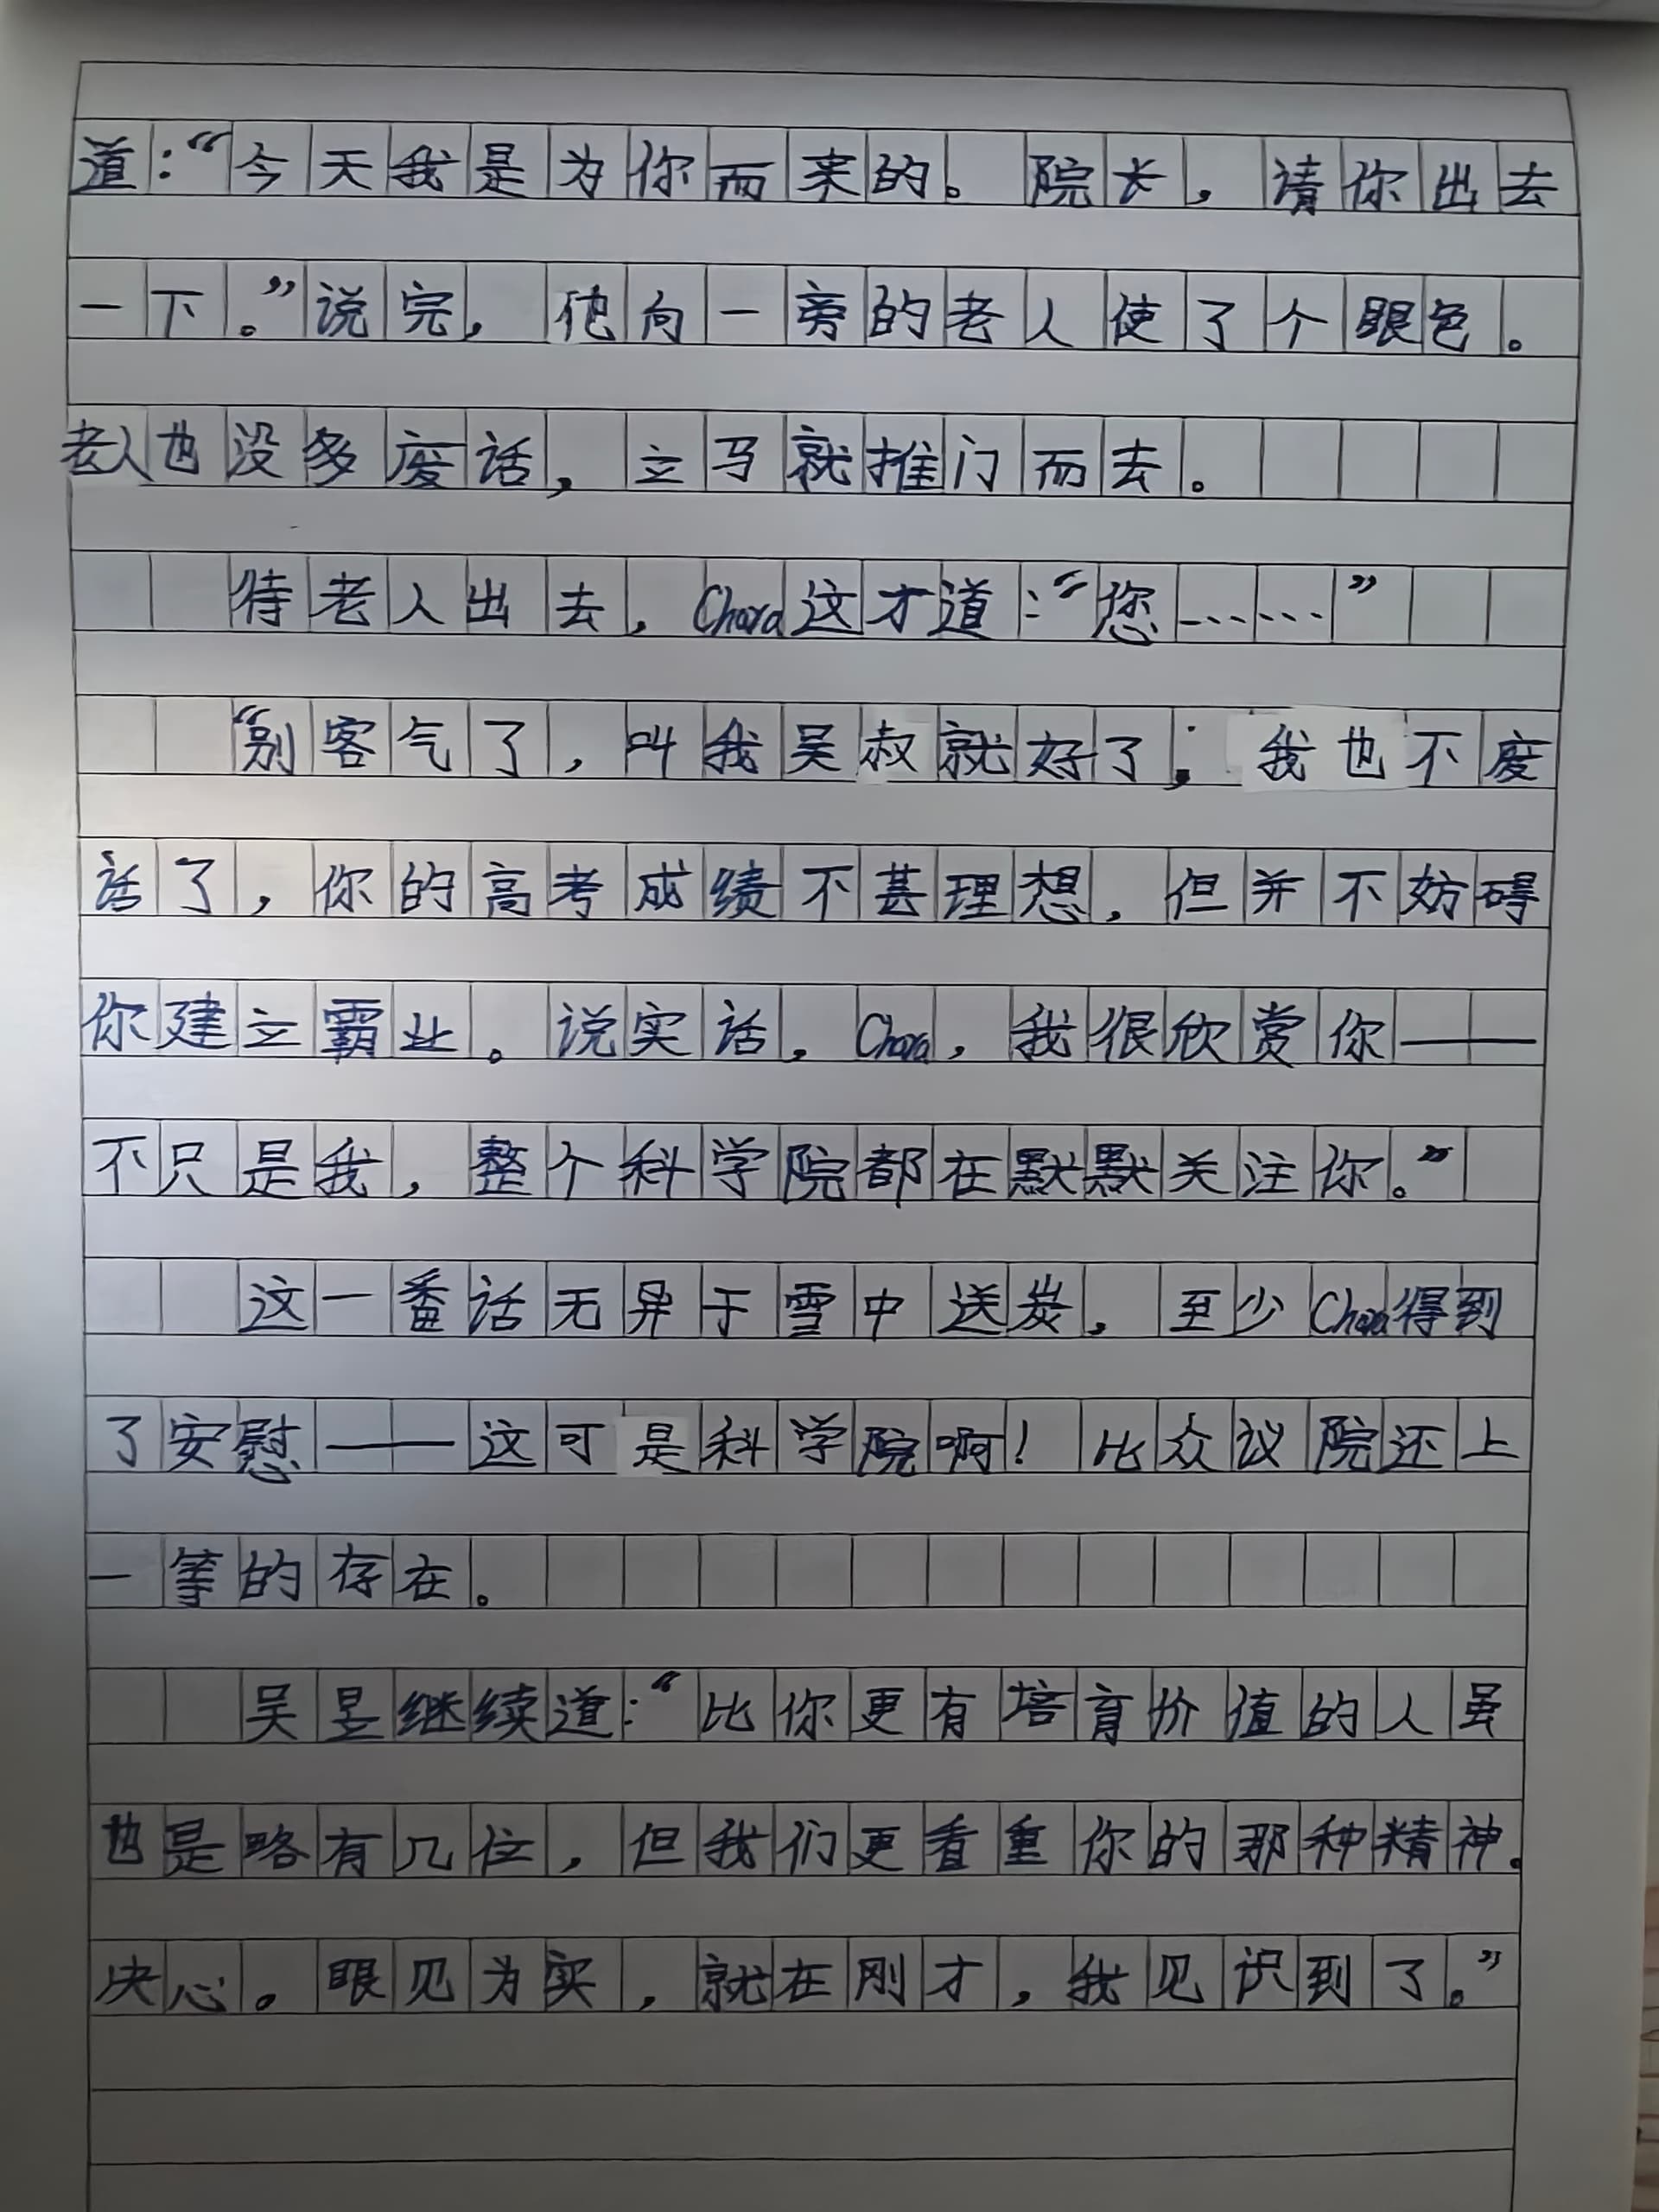 道：“今天我是为你而来的。院长，请你出去
一下。”说完，他向一旁的老人使了个眼色。
老人也没多废话，立马就推门而去。
待老人出去，Chara这才道：“您……”
“别客气了，叫我吴叔就好了；我也不废
话了，你的高考成绩不甚理想，但并不妨碍
你建立霸业。说实话，Chara，我很欣赏你——
不只是我，整个科学院都在默默关注你。”
这一番话无异于雪中送炭，至少Chara得到
了安慰——这可是科学院啊！比众议院还上
一等的存在。
吴昱继续道：“比你更有培育价值的人虽
也是略有几位，但我们更看重你的那种精神。
决心。眼见为实，就在刚才，我见识到了。”